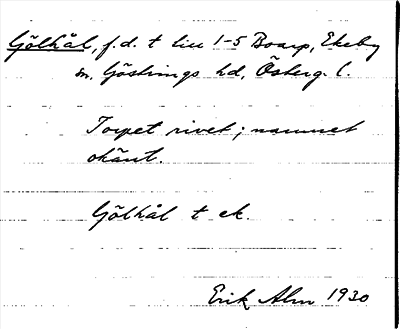 Gölhål, f.d. t liu 1-5 Boarp, Ekeby
sn. Göstrings hd, Österg. l.
Torpet rivet; namnet
okänt.
Gölhål t ek.
Erik Alm 1930